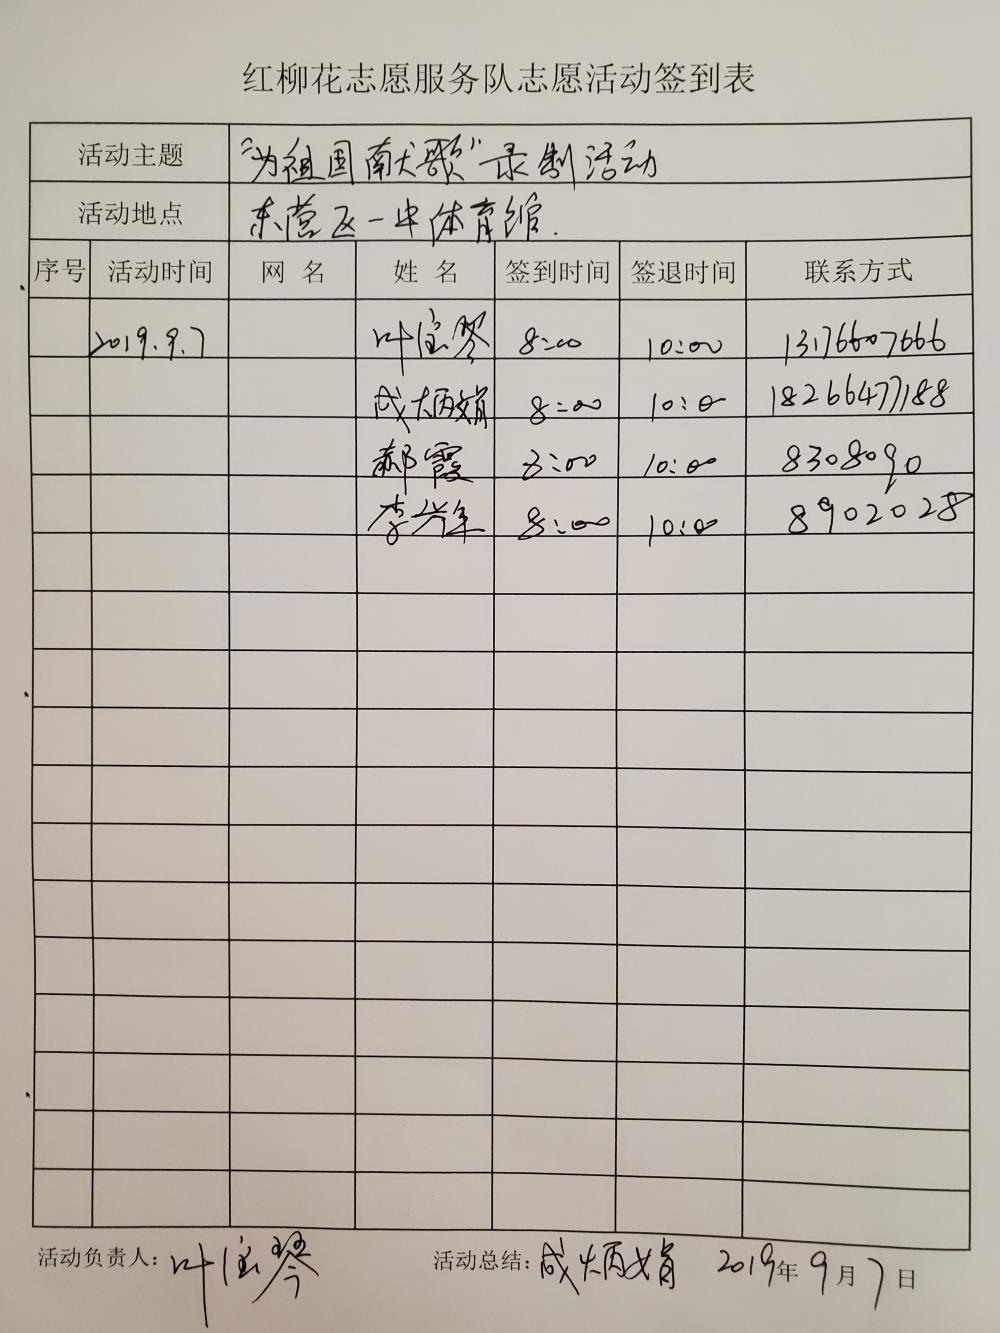 红柳花志愿服务队志愿活动签到表
活动主题 "为祖国献歌"录制活动
活动地点 东营区一中体育馆.
序号 活动时间 网 名 姓 名 签到时间 签退时间 联系方式
2019.9.7 叶宝琴 8:00 10:00 13176607666
成炳娟 8:00 10:00 18266477188
郝霞 8:00 10:00 8308090
李兴军 8:00 10:00 8902028
活动负责人: 叶宝琴 活动总结: 成炳娟 2019年9月7日